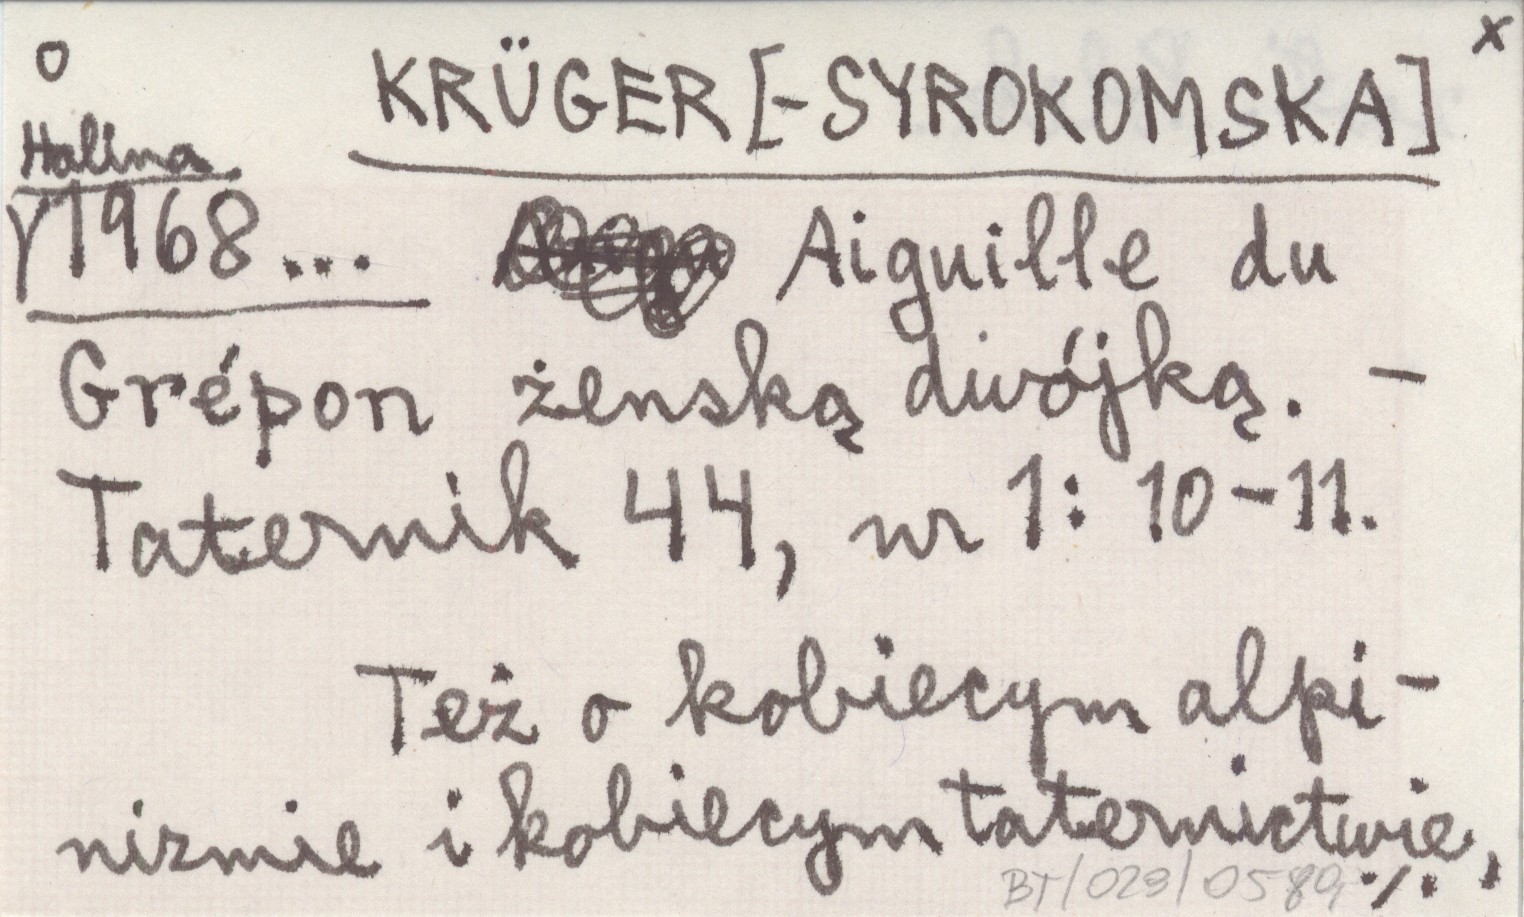 o KRÜGER [-SYROKOMSKA] x
Halina
1968... Aiguille du
Grépon żenską dwójką. -
Taternik 44, nr 1: 10-11.
Też o kobiecym alpi-
nizmie i kobiecym taternictwie,
BT/029/0580, ./.